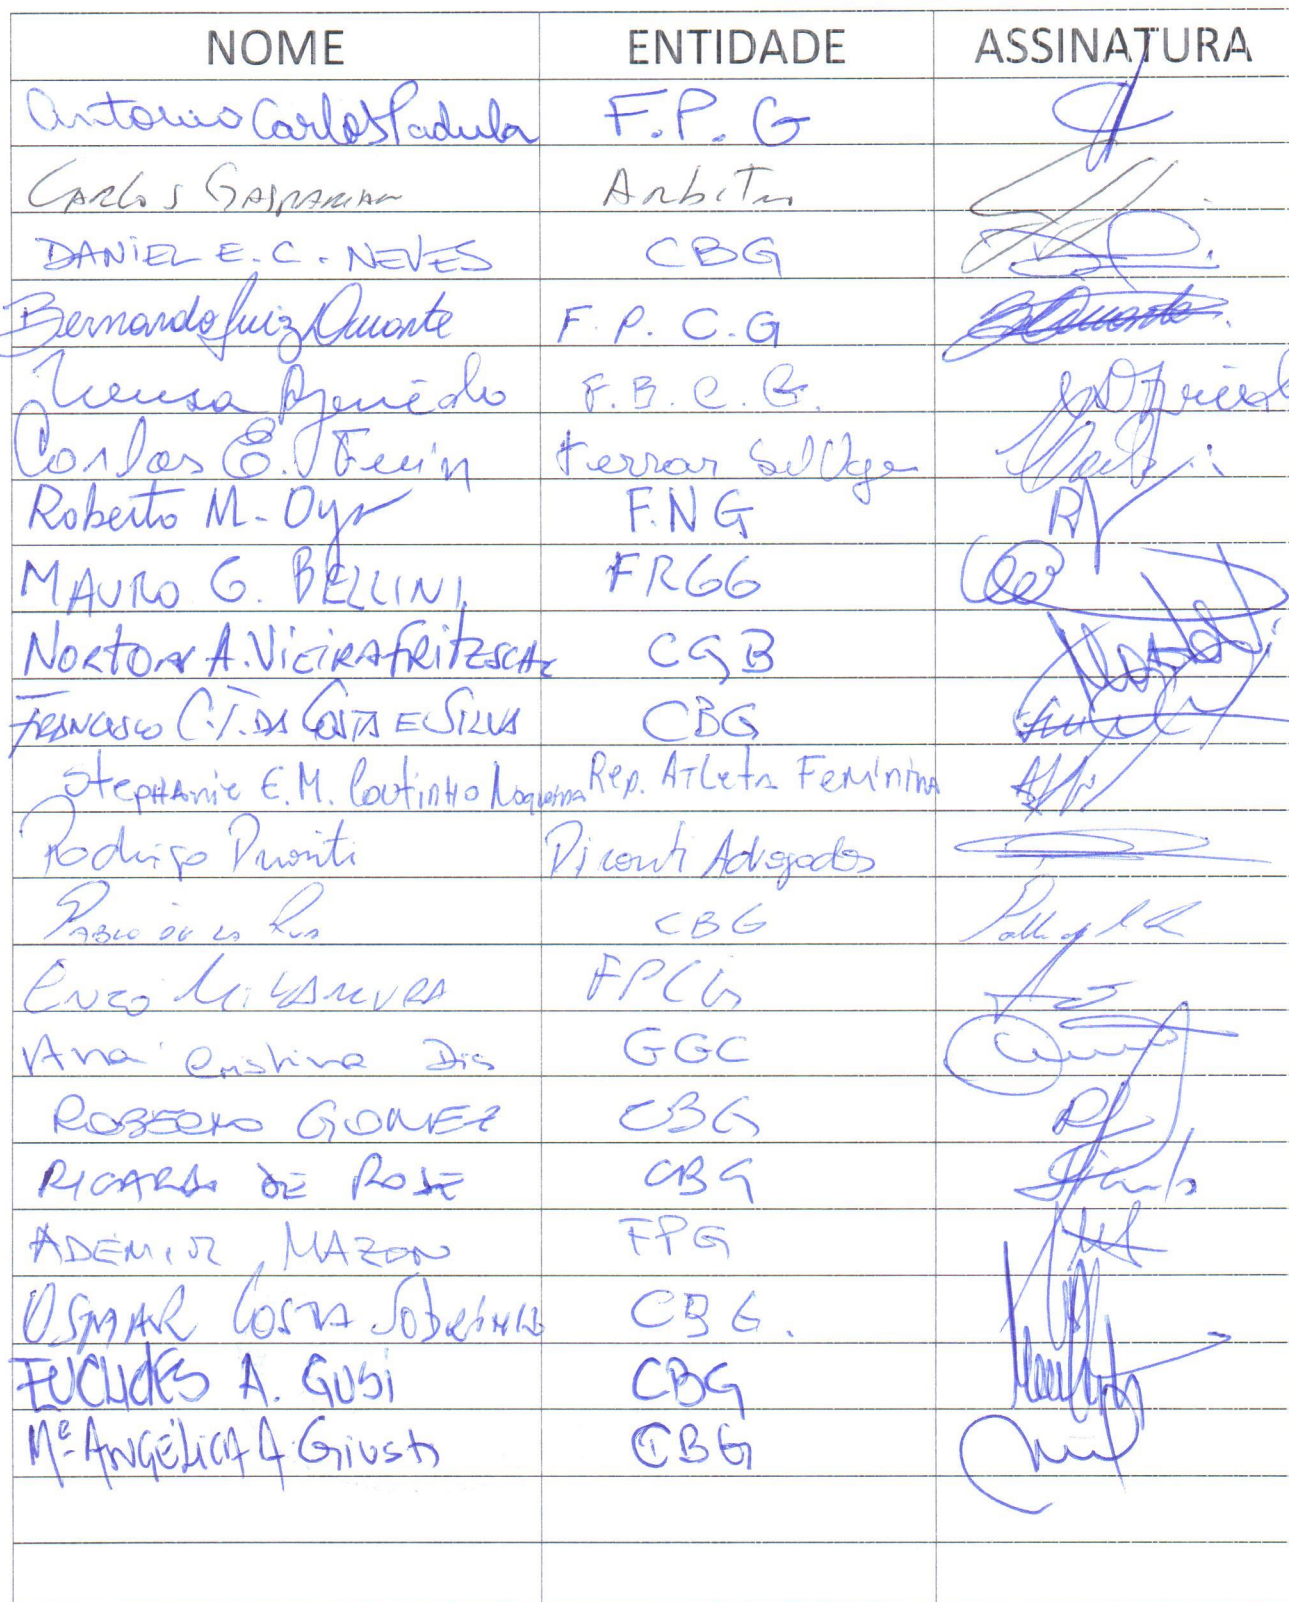 NOME ENTIDADE ASSINATURA
Antonio Carlos Padula F.P.G
Carlos Gasparian Arbitro
DANIEL E.C. NEVES CBG
Bernardo Luiz Duarte F.P.C.G BLDuarte
Azevedo F.B.C.G.
Carlos E. Ferrar Selvagem
Roberto M. F.N.G
MAURO G. BELLINI FRGG
NORTON A. VIEIRA FRITZSCHE CGB
FRANCISCO C.T. DA COSTA E SILVA CBG
Stephanie E.M. Coutinho Nogueira Rep. Atleta Feminina
Rodrigo Advogados
PABLO DE LA CBG
ENZO FPCG
Ana Cristina Dis GGC
ROBERTO GOMEZ CBG
RICARDO DE ROSE CBG
ADEMIR MAZON FPG
OSMAR COSTA SOBRINHO CBG.
EUCLIDES A. GUSI CBG
Mª ANGÉLICA A. Giusti CBG